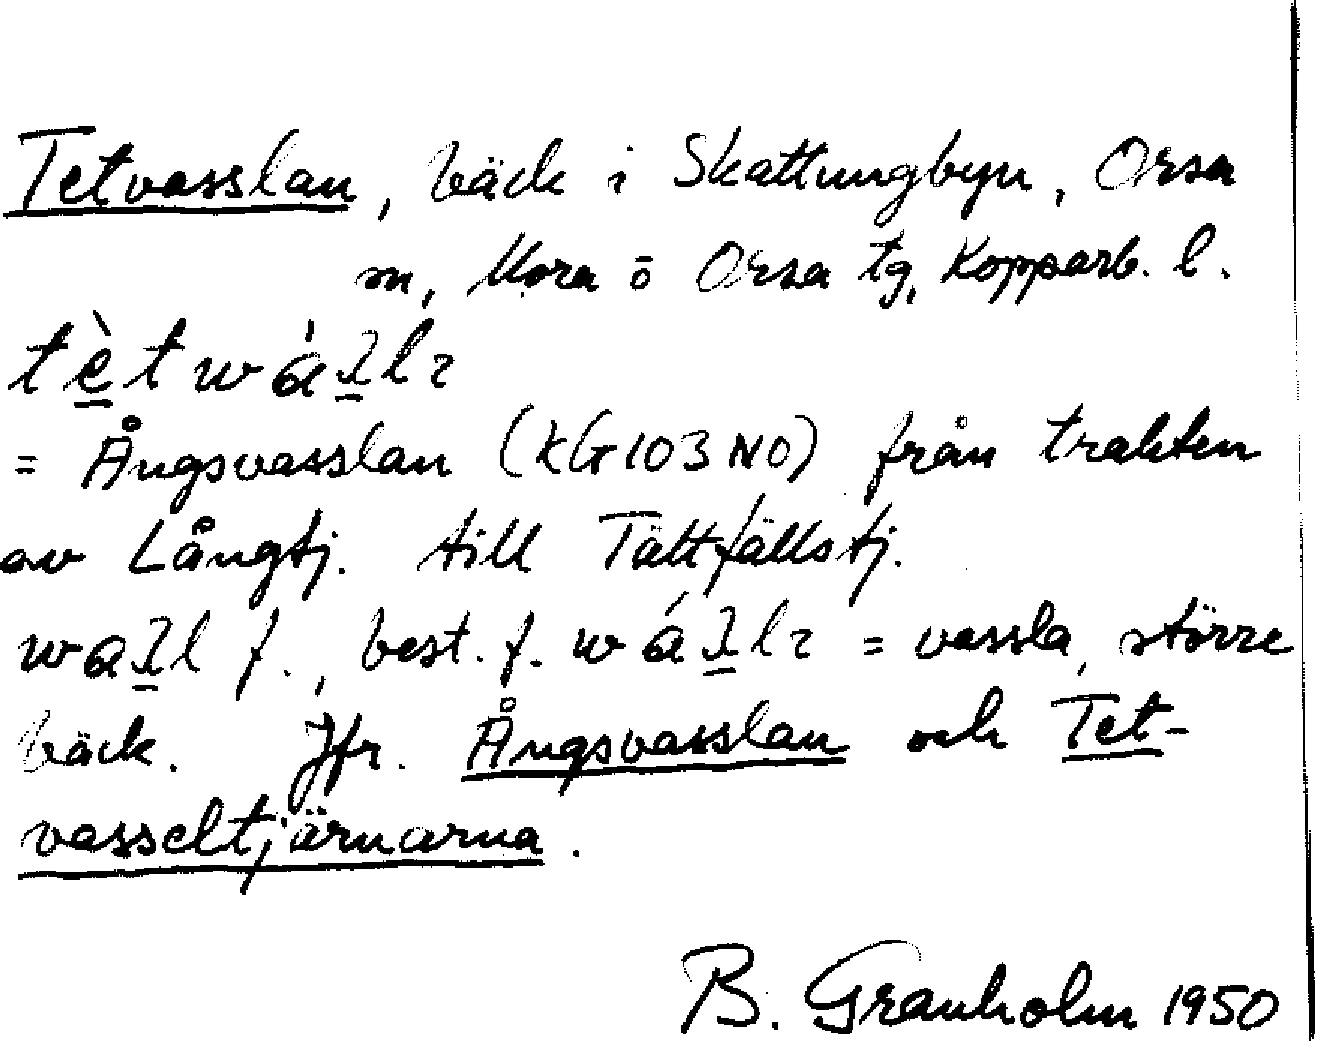 Tetvasslan, bäck i Skattungbyn, Orsa
m, Mora o Orsa tg, Kopparb. l.
= Ångsvasslan (KG103NO) från trakten
av Långtj. till Tättfällstj.
f., best. f. = vassla, större
bäck. Jfr. Ångsvasslan och Tet-
vasseltjärnarna.
B. Granholm 1950